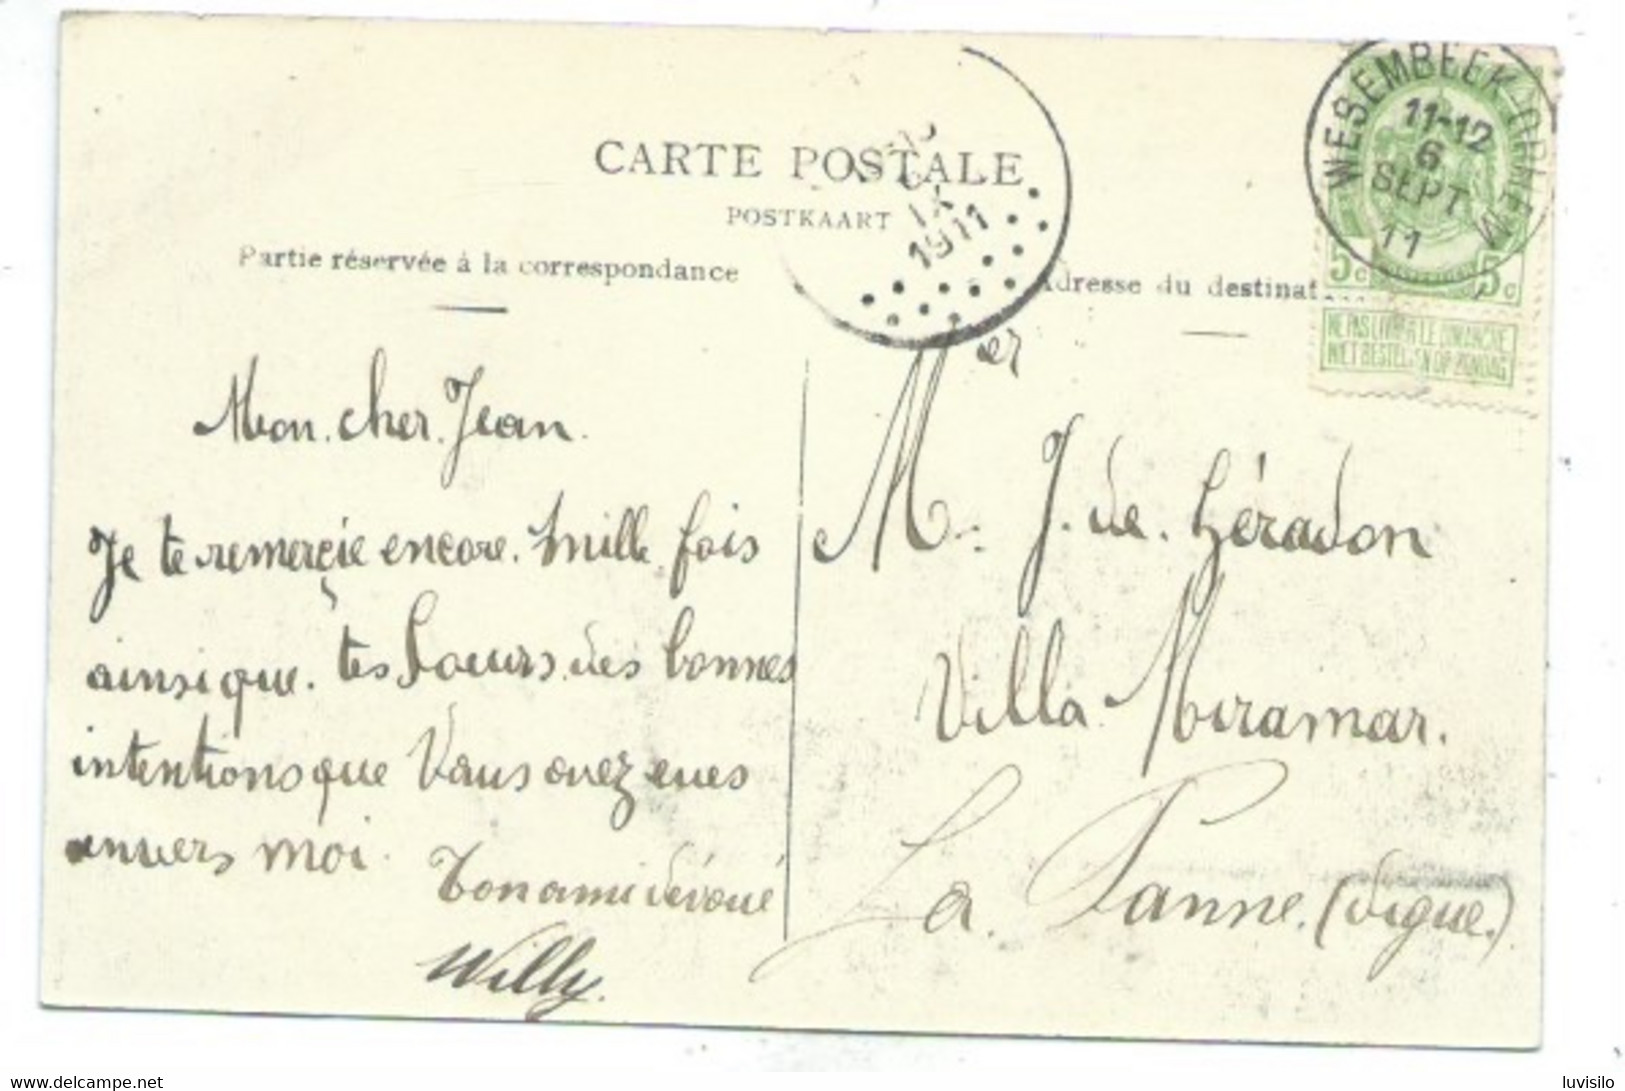 CARTE POSTALE
POSTKAART
Partie réservée à la correspondance
Adresse du destinat
WESEMBEEK-OPHEM
11-12
6
SEPT
11
IX
1911
5c 5c
NE PAS LIVRER LE DIMANCHE
NIET BESTELLEN OP ZONDAG
Mon cher Jean.
Je te remerçie encore mille fois
ainsi que tes soeurs des bonnes
intentions que vous avez eues
envers moi.
Ton ami dévoué
Willy.
Mer
M. J. de Géradon
Villa Miramar.
La Panne. (Digue.)
delcampe.net
luvisilo